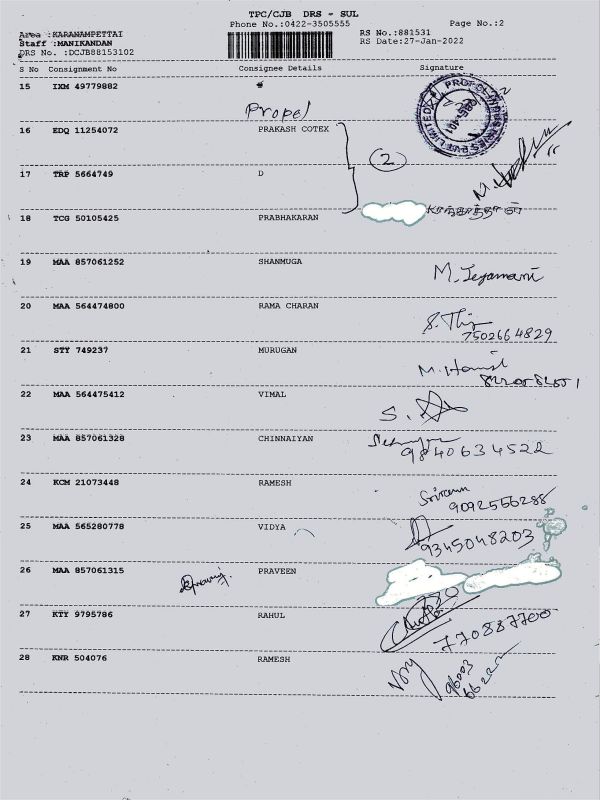 TPC/CJB DRS - SUL
Phone No.:0422-3505555 Page No.:2
Area :KARANAMPETTAI
Staff :MANIKANDAN
DRS No. :DCJB88153102
RS No.:881531
RS Date:27-Jan-2022
S No Consignment No Consignee Details Signature
15 IXM 49779882
Propel
16 EDQ 11254072 PRAKASH COTEX
2
17 TRP 5664749 D
18 TCG 50105425 PRABHAKARAN
19 MAA 857061252 SHANMUGA
M. Jeyamani
20 MAA 564474800 RAMA CHARAN
7502664829
21 STY 749237 MURUGAN
22 MAA 564475412 VIMAL
S.
23 MAA 857061328 CHINNAIYAN
9840634522
24 KCM 21073448 RAMESH
Sriram
9092556288
25 MAA 565280778 VIDYA
9345048203
26 MAA 857061315 PRAVEEN
27 KTY 9795786 RAHUL
770887700
28 KNR 504076 RAMESH
96003
66222